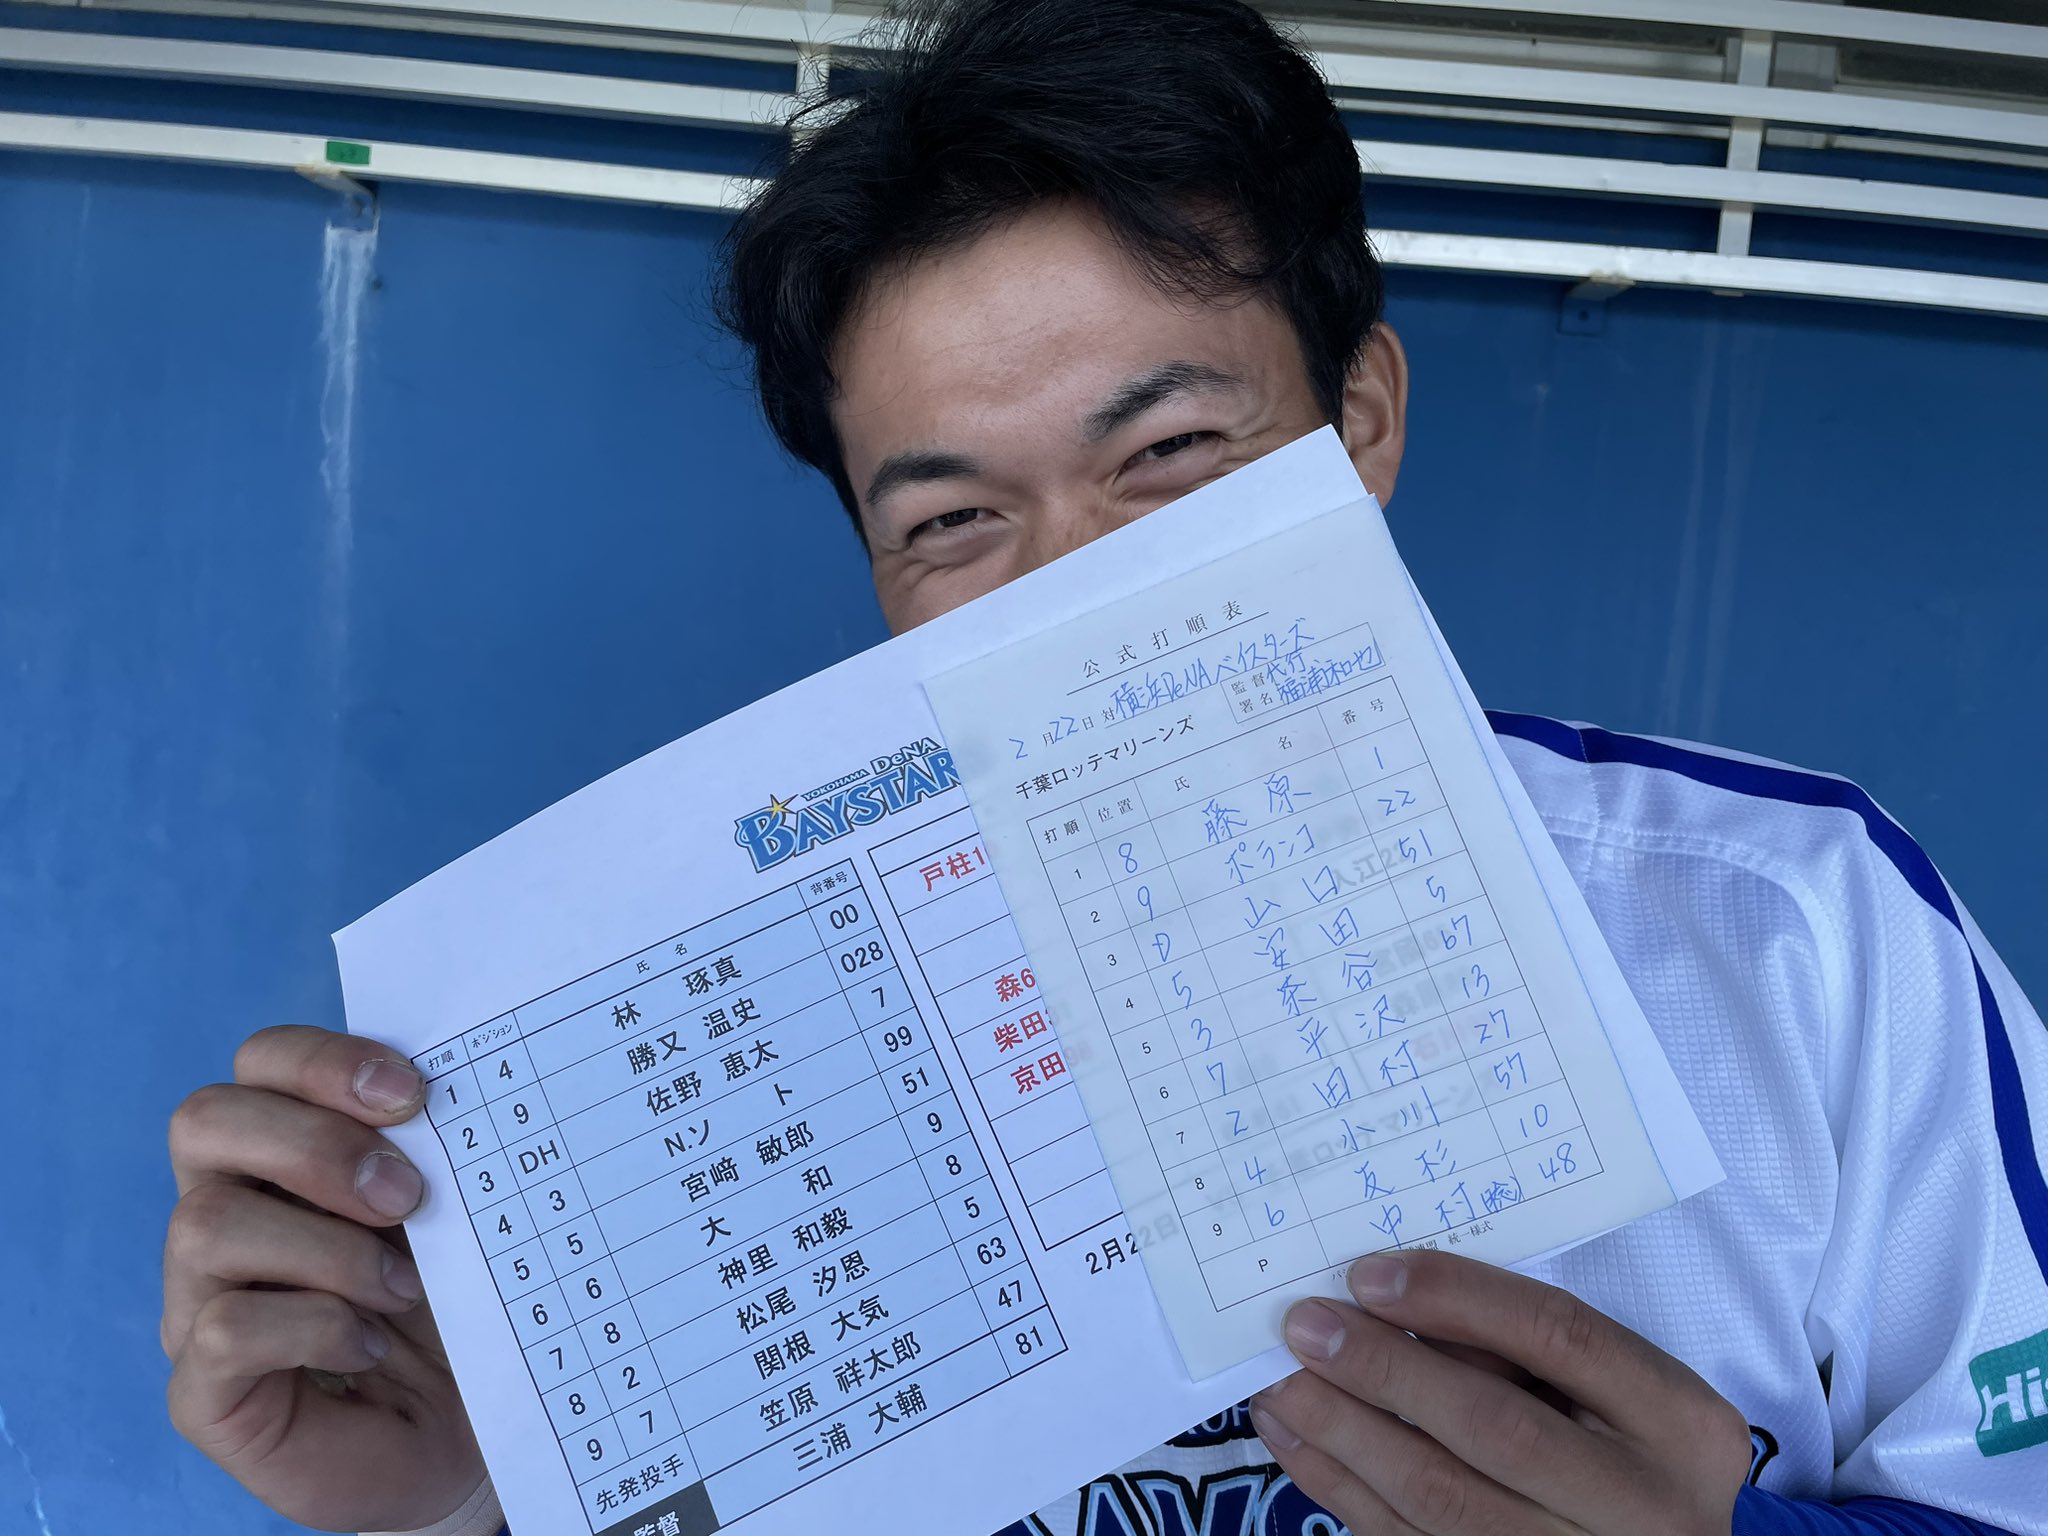 YOKOHAMA DeNA
BAYSTAR
打順 ポジション 氏名 背番号
1 4 林 琢真 00
2 9 勝又 温史 028
3 DH 佐野 恵太 7
4 3 N.ソト 99
5 5 宮﨑 敏郎 51
6 6 大和 9
7 8 神里 和毅 8
8 2 松尾 汐恩 5
9 7 関根 大気 63
先発投手 笠原 祥太郎 47
監督 三浦 大輔 81
戸柱1
森6
柴田3
京田
2月22日
公式打順表
2月22日対 横浜DeNAベイスターズ
監督署名 代行 福浦和也
千葉ロッテマリーンズ
打順 位置 氏名 番号
1 8 藤原 1
2 9 ポランコ 22
3 D 山口 51
4 5 安田 5
5 3 茶谷 67
6 7 平沢 13
7 2 田村 27
8 4 小川 57
9 6 友杉 10
P 中村(稔) 48
統一様式
Hi